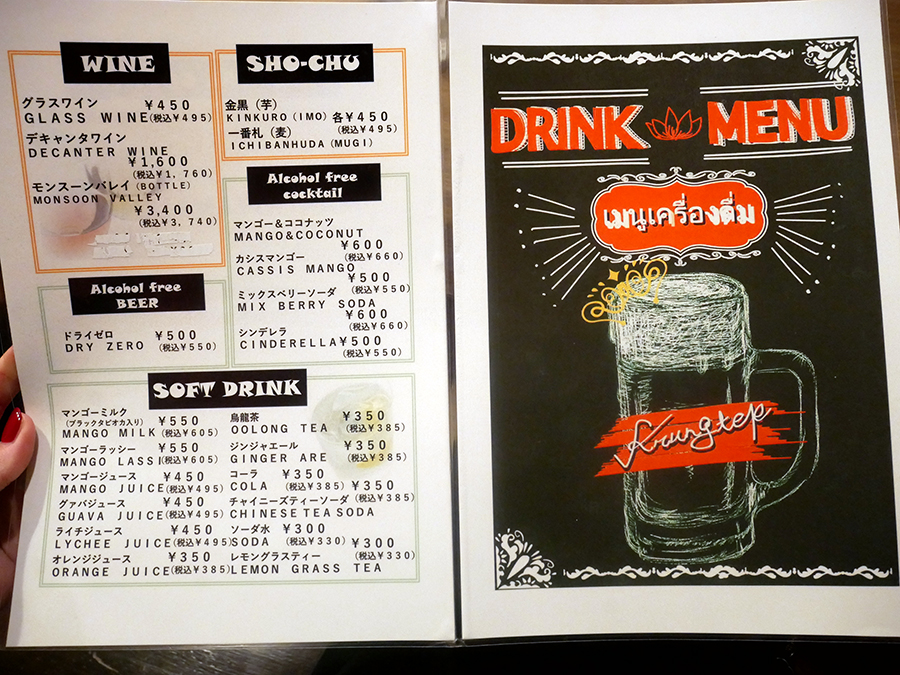 WINE
グラスワイン ¥450
GLASS WINE (税込¥495)
デキャンタワイン
DECANTER WINE
¥1,600
(税込¥1,760)
モンスーンバレイ (BOTTLE)
MONSOON VALLEY
¥3,400
(税込¥3,740)
SHO-CHU
金黒(芋)
KINKURO(IMO) 各¥450
一番札(麦) (税込¥495)
ICHIBANHUDA(MUGI)
Alcohol free
cocktail
マンゴー&ココナッツ
MANGO&COCONUT
¥600
(税込¥660)
カシスマンゴー
CASSIS MANGO
¥500
(税込¥550)
ミックスベリーソーダ
MIX BERRY SODA
¥600
(税込¥660)
シンデレラ
CINDERELLA ¥500
(税込¥550)
Alcohol free
BEER
ドライゼロ ¥500
DRY ZERO (税込¥550)
SOFT DRINK
マンゴーミルク
(ブラックタピオカ入り) ¥550
MANGO MILK (税込¥605)
マンゴーラッシー ¥550
MANGO LASSI (税込¥605)
マンゴージュース ¥450
MANGO JUICE (税込¥495)
グァバジュース ¥450
GUAVA JUICE (税込¥495)
ライチジュース ¥450
LYCHEE JUICE (税込¥495)
オレンジジュース ¥350
ORANGE JUICE (税込¥385)
烏龍茶 ¥350
OOLONG TEA (税込¥385)
ジンジャエール ¥350
GINGER ARE (税込¥385)
コーラ ¥350
COLA (税込¥385) ¥350
チャイニーズティーソーダ (税込¥385)
CHINESE TEA SODA
ソーダ水 ¥300
SODA (税込¥330) ¥300
レモングラスティー (税込¥330)
LEMON GRASS TEA
DRINK MENU
เมนูเครื่องดื่ม
Krungtep